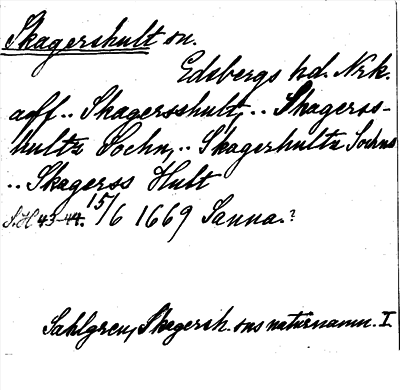 Skagershult sn.
Edsbergs hd. Nrk.
aff .. Skagersshult, .. Skagerss-
hultz Sochn, .. Skagerhultz Sochns
.. Skagerss Hult
S.H 43-44. 15/6 1669 Sanna.?
Sahlgren, Skagersh. sns naturnamn. I.